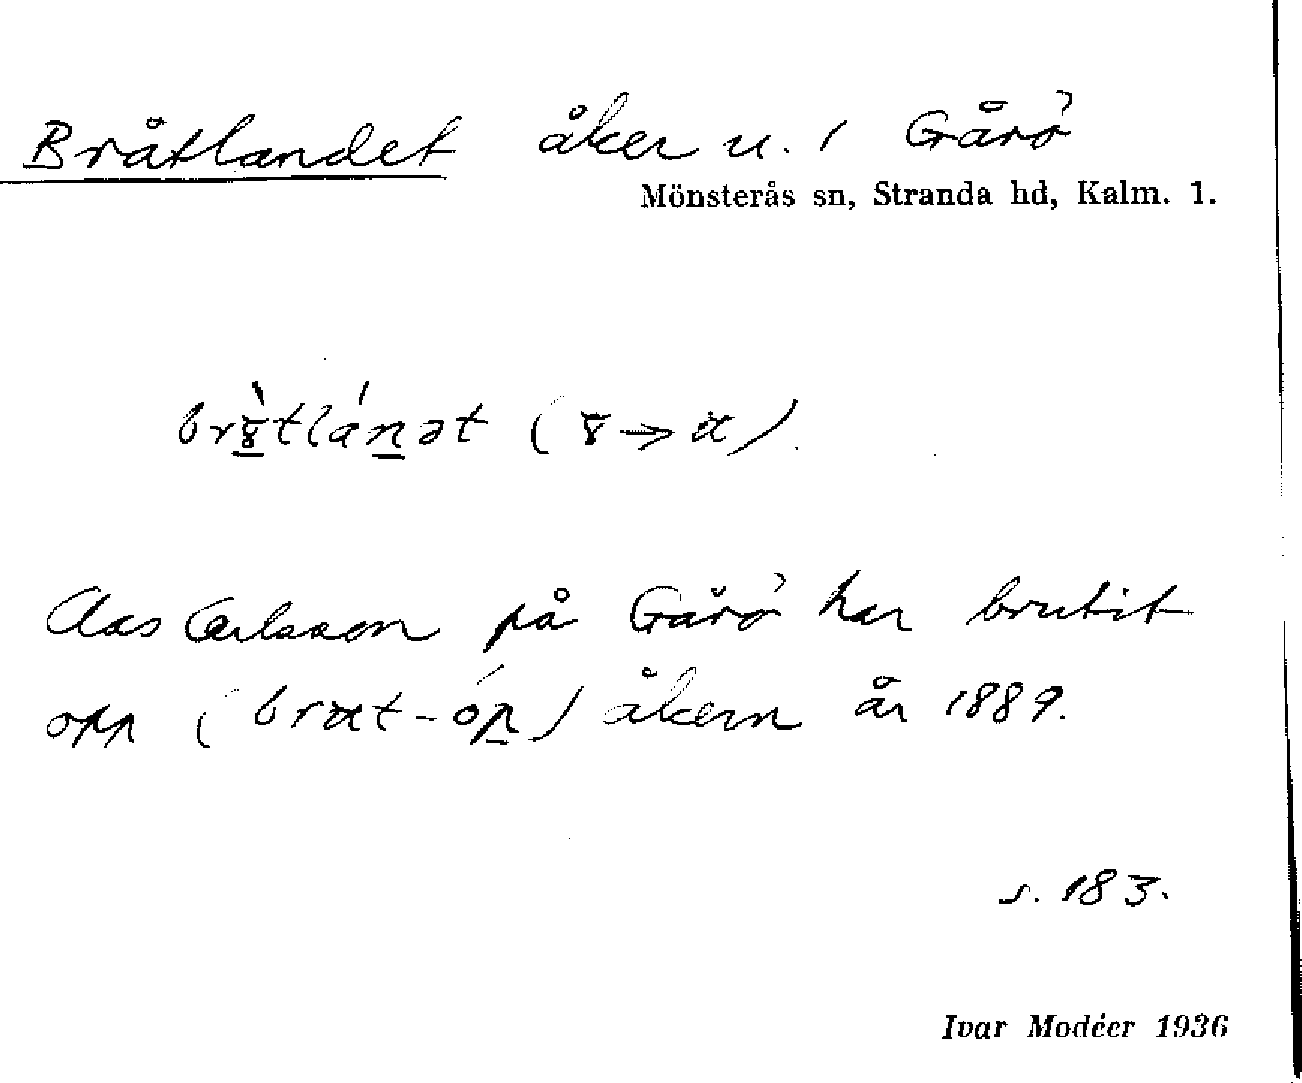 Bråtlandet åker u. 1 Gårö
Mönsterås sn, Stranda hd, Kalm. l.
Clas Carlsson på Gårö har brutit
opp ( åkern år 1889.
s. 183.
Ivar Modéer 1936